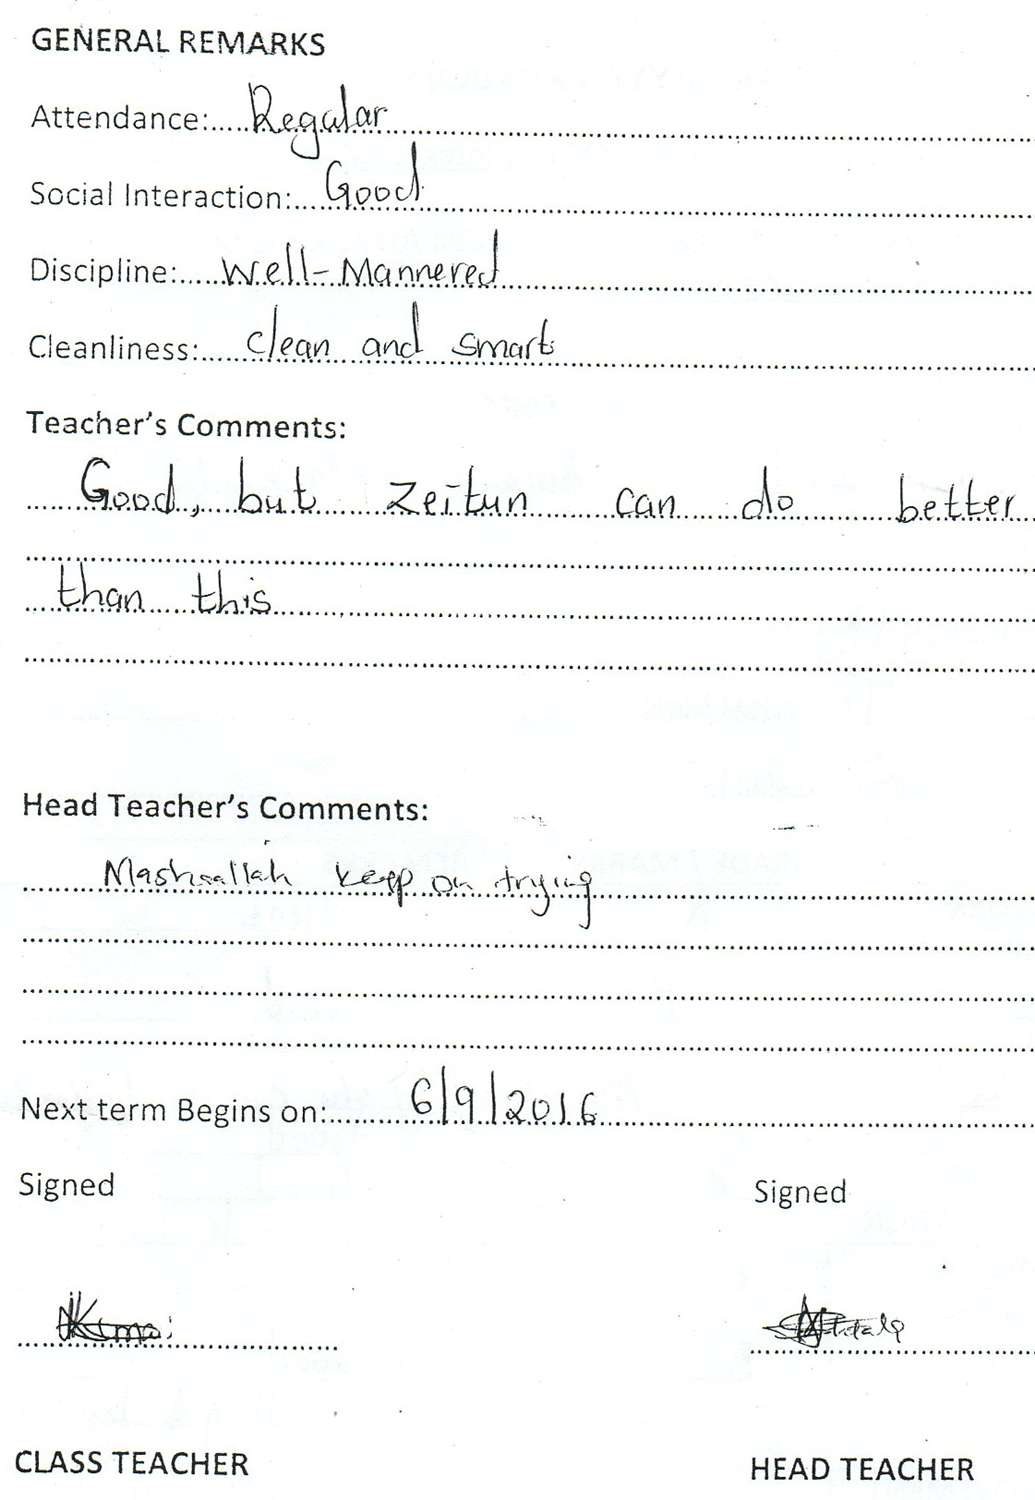 GENERAL REMARKS
Attendance: Regular
Social Interaction: Good
Discipline: Well-Mannered
Cleanliness: clean and smart
Teacher's Comments:
Good, but Zeitun can do better
than this
Head Teacher's Comments:
Mashaallah keep on trying
Next term Begins on: 6/9/2016
Signed Signed
CLASS TEACHER HEAD TEACHER